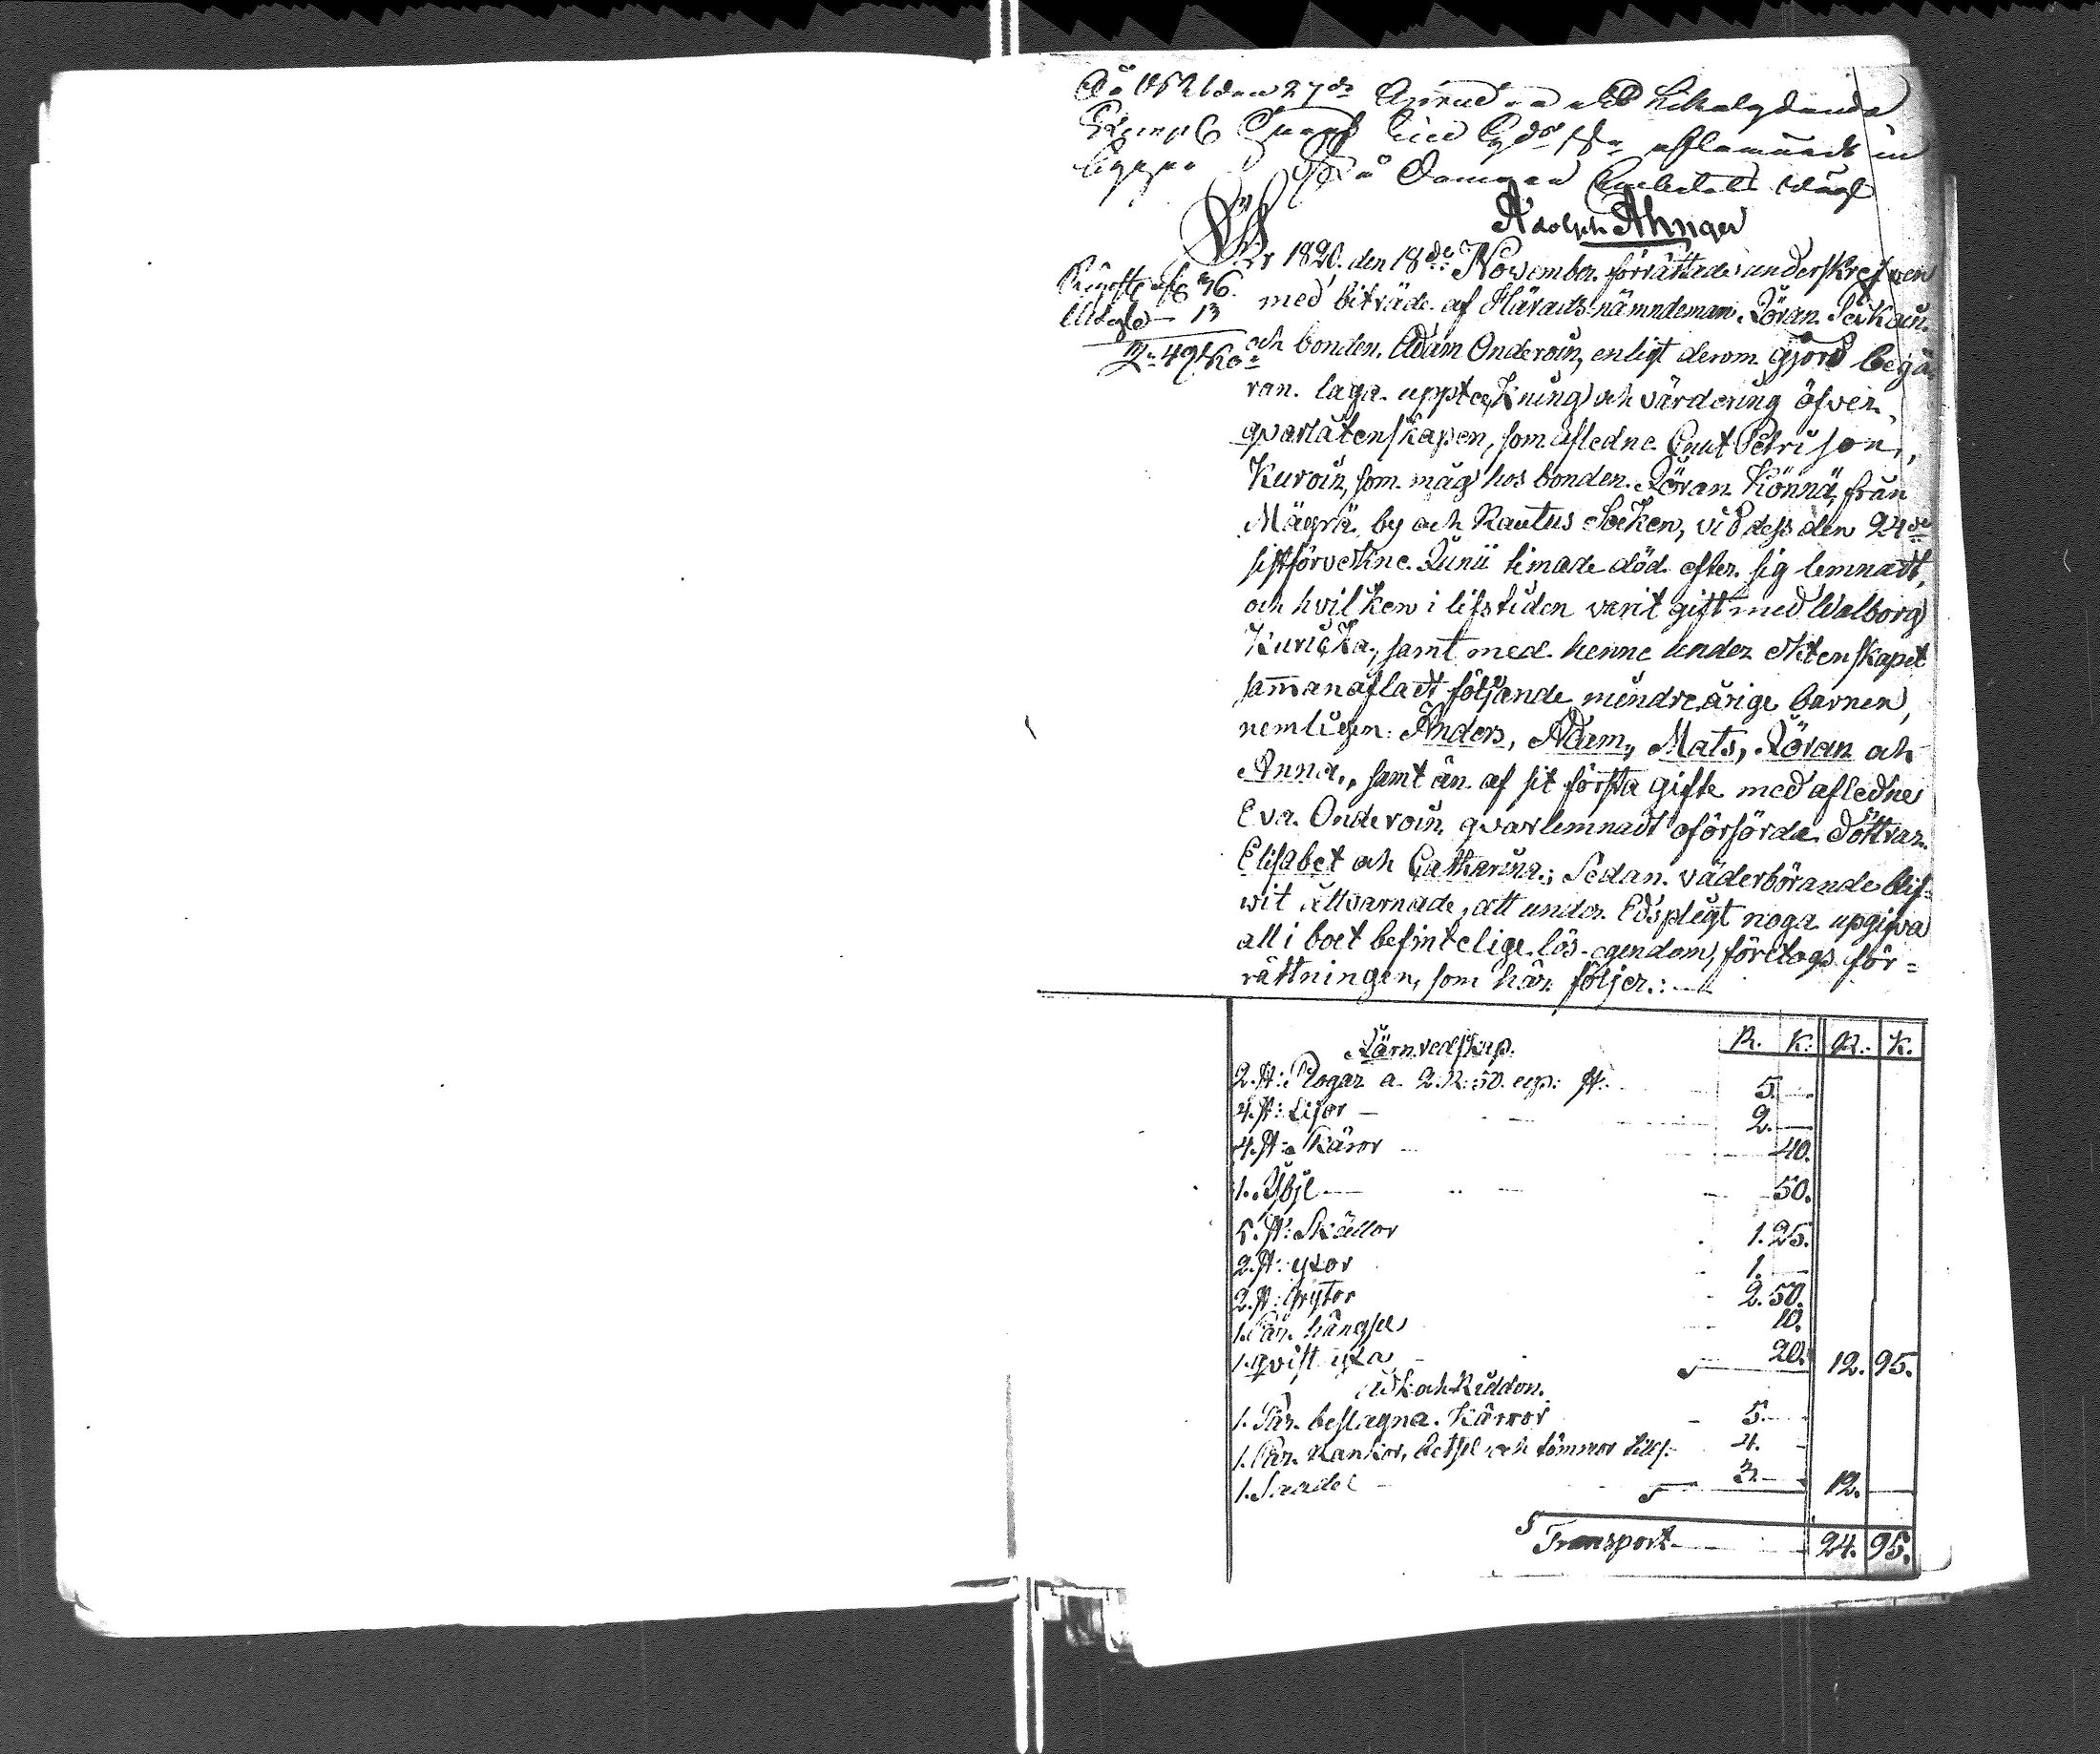 År 1821 den 27de
Adolph Ahnger
År 1820. den 18de November förrättade underskrefven
med biträde af Härads-nämndeman Jöran Peikoin
och bonden Adam Onderoin, enligt derom gjord begä-
ran laga uppteckning och värdering öfver
qvarlåtenskapen, som afledne Knut Petri son
Kuroin, som måg hos bonden Jöran Könnä från
Mägrä by och Rautus Socken, vid dess den 24de
sistförvekne Junii timade död efter sig lemnatt,
och hvilken i lifstiden varit gift med Walborg
Kuricka, samt med henne under ektenskapet
sam̄anaflatt följande mindreårige barnen,
nemligen: Anders, Adam, Mats, Jöran och
Anna, samt än af sit första gifte med aflednes
Eva Onderoin qvarlemnadt oförsörda döttrar
Elisabet och Catharina; Sedan väderbörande blif-
wit åtvarnade, att under Edsplegt noga upgifva
all i boet befintelige lös-egendom, företogs för=
rättningen, som här följer:
Järnredskap. R. K. R. K.
2. st: Plogar a. 2. R: 50. cop: st: 5. —
4. st: Lijor — 2. —
4. st: Skäror 40.
1. Isbil — 50.
5. st: Skällor 1. 25.
2. st: yxor 1. —
2. st: Grytor 2. 50.
1. Par hängsel 10.
1. qvist yxa 20. 12. 95.
Åk och Riddon.
1. Par beslagna Kärror 5. —
1. Par Rankor, betsel och tömmor 4. —
1. Sadel 3. — 12. —
Transport 24. 95.